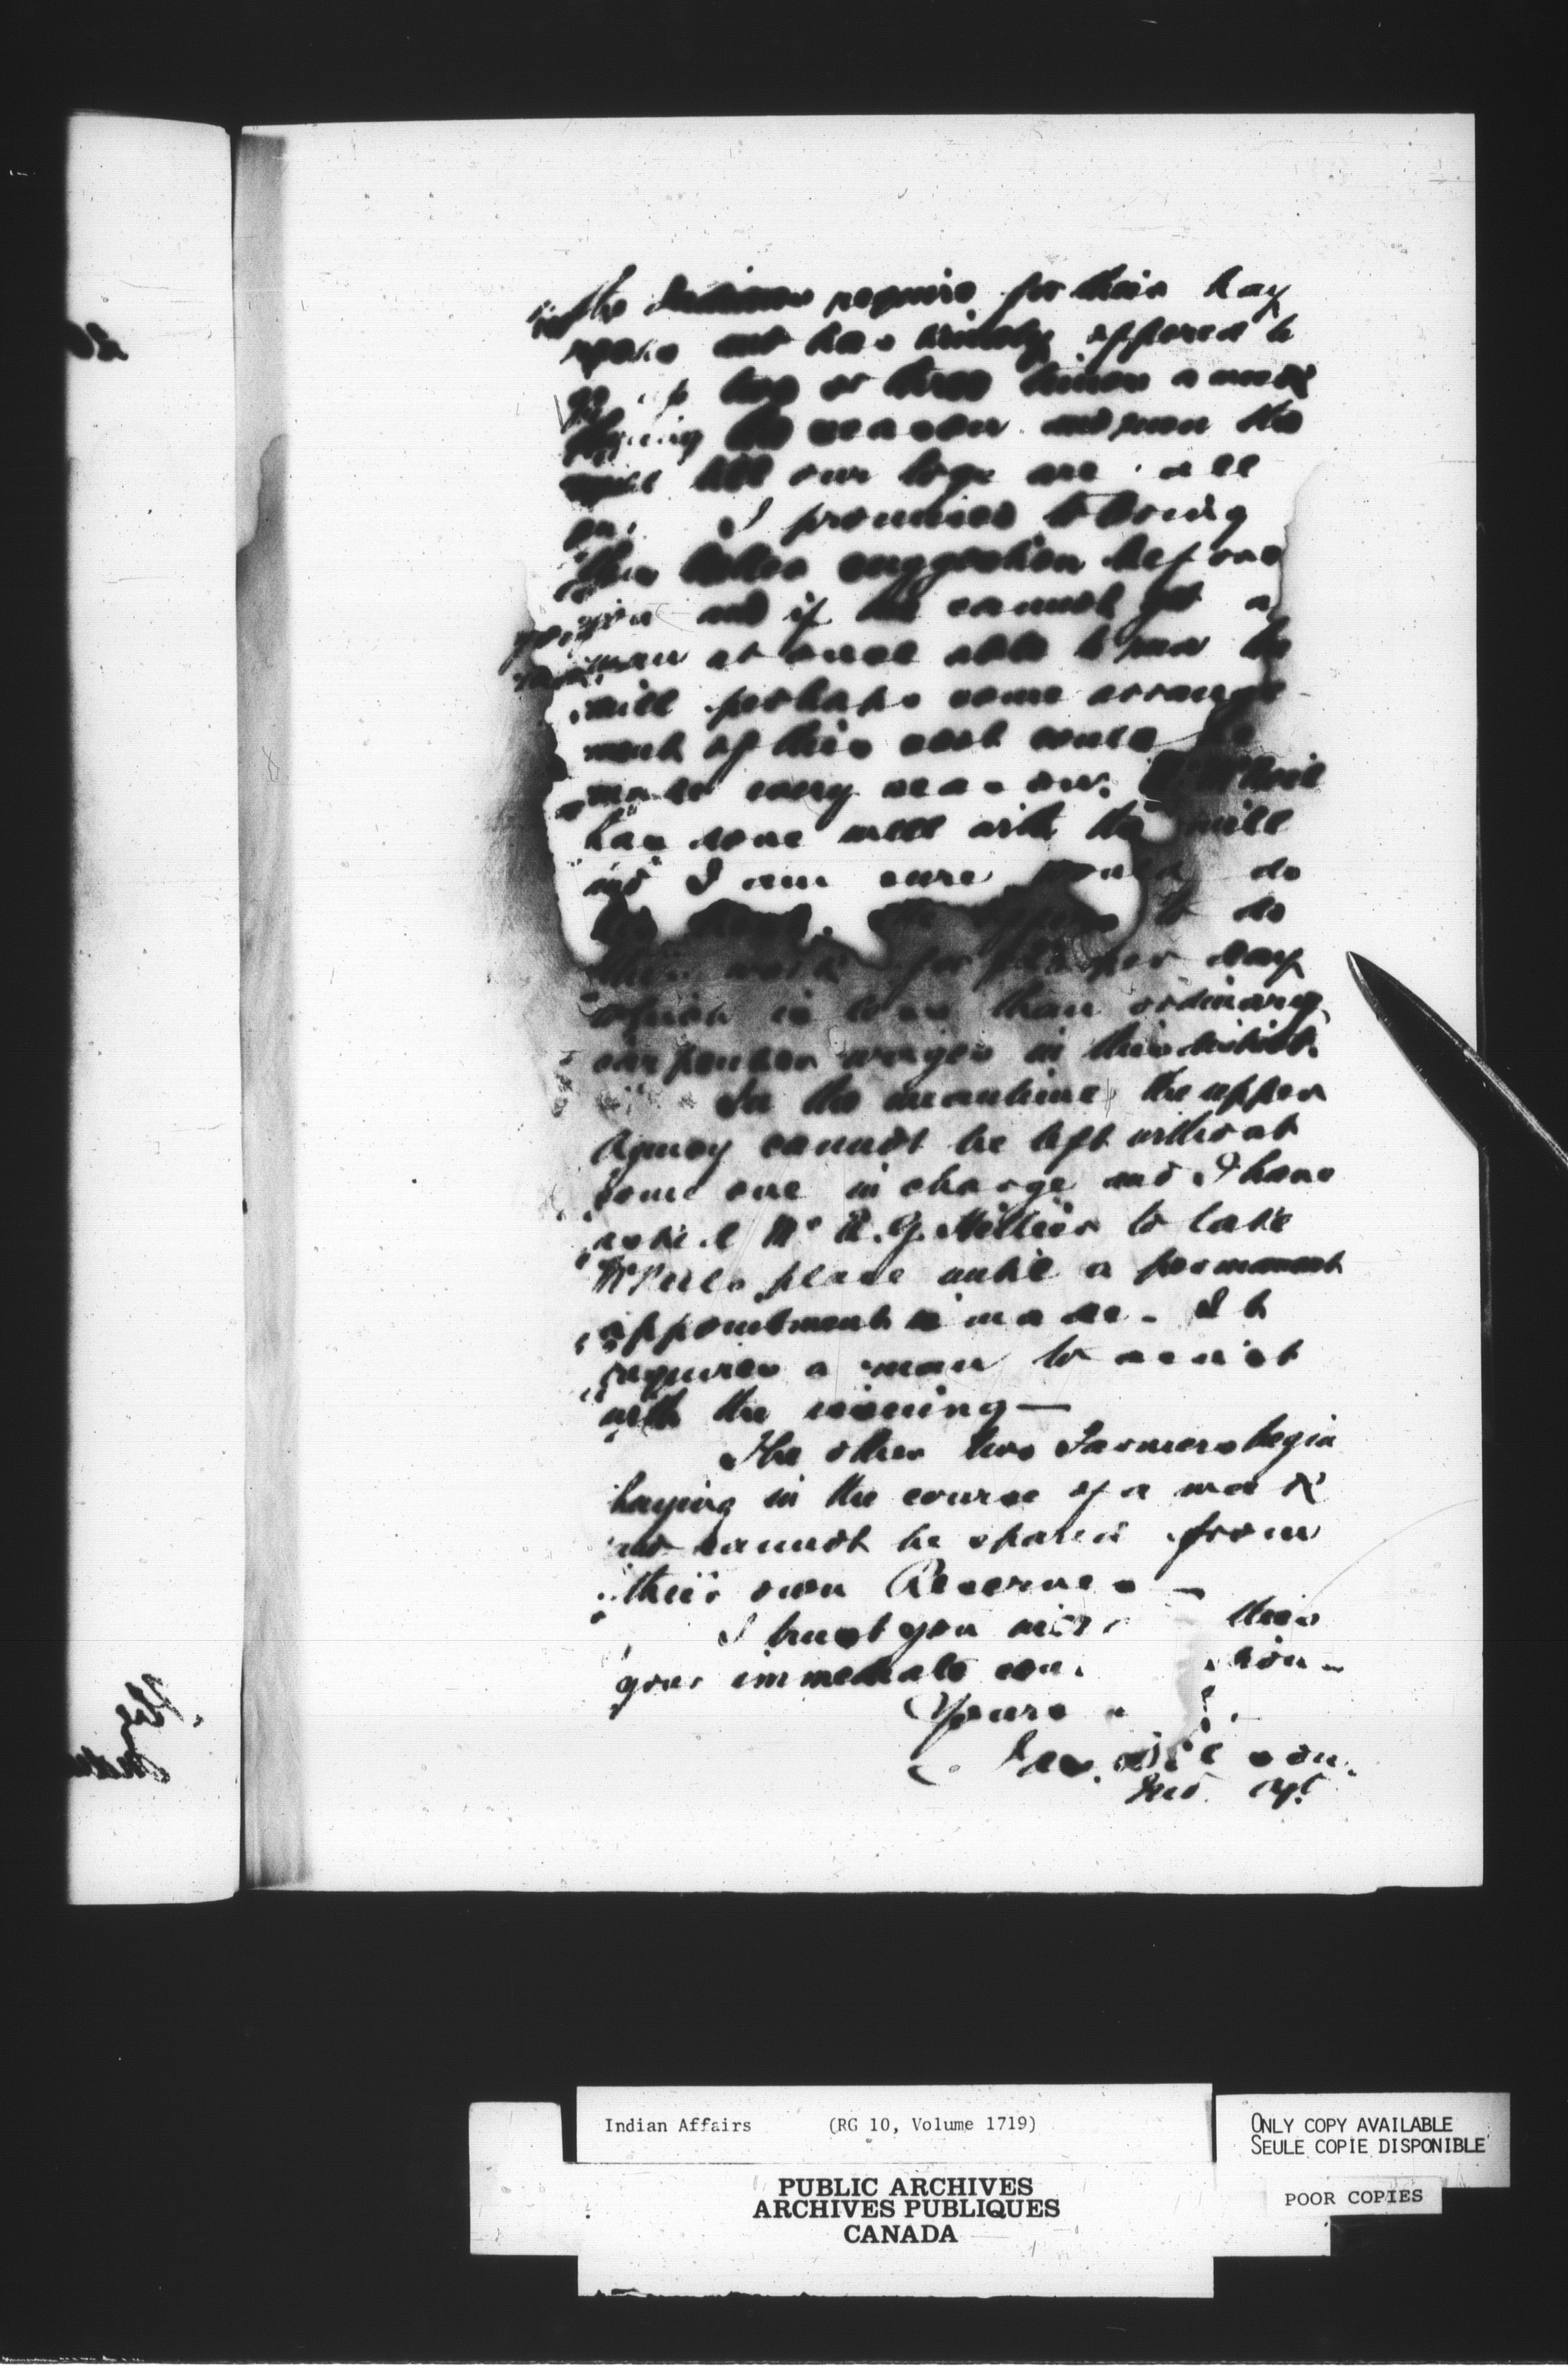 the Indians require for their hay
and has kindly offered to
go up two or three times a week
during the season and run the
mill till our logs are all
I promised to bring
this latter suggestion before
you and if we cannot get a
man at once able to run the
mill perhaps some arrange
ment of this sort could be
made every season.
has done well with the mill
and I am sure would do
to do
this work for per day
which is less than ordinary
carpenters wages in this district.
In the meantime the upper
Agency cannot be left without
some one in charge and I have
asked Mr R. G. to take
place until a permanent
appointment is made. It
requires a man to assist
with the
The other two Farmers begin
haying in the course of a week
and cannot be spared from
their own Reserves
I trust you will this
your immediate
Yours
Ind. Agt.
Indian Affairs (RG 10, Volume 1719)
ONLY COPY AVAILABLE
SEULE COPIE DISPONIBLE
POOR COPIES
PUBLIC ARCHIVES
ARCHIVES PUBLIQUES
CANADA